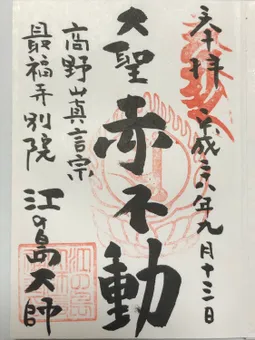 奉拝
平成二八年九月十三日
大聖赤不動
高野山真言宗
最福寺別院
江の島大師
江の島